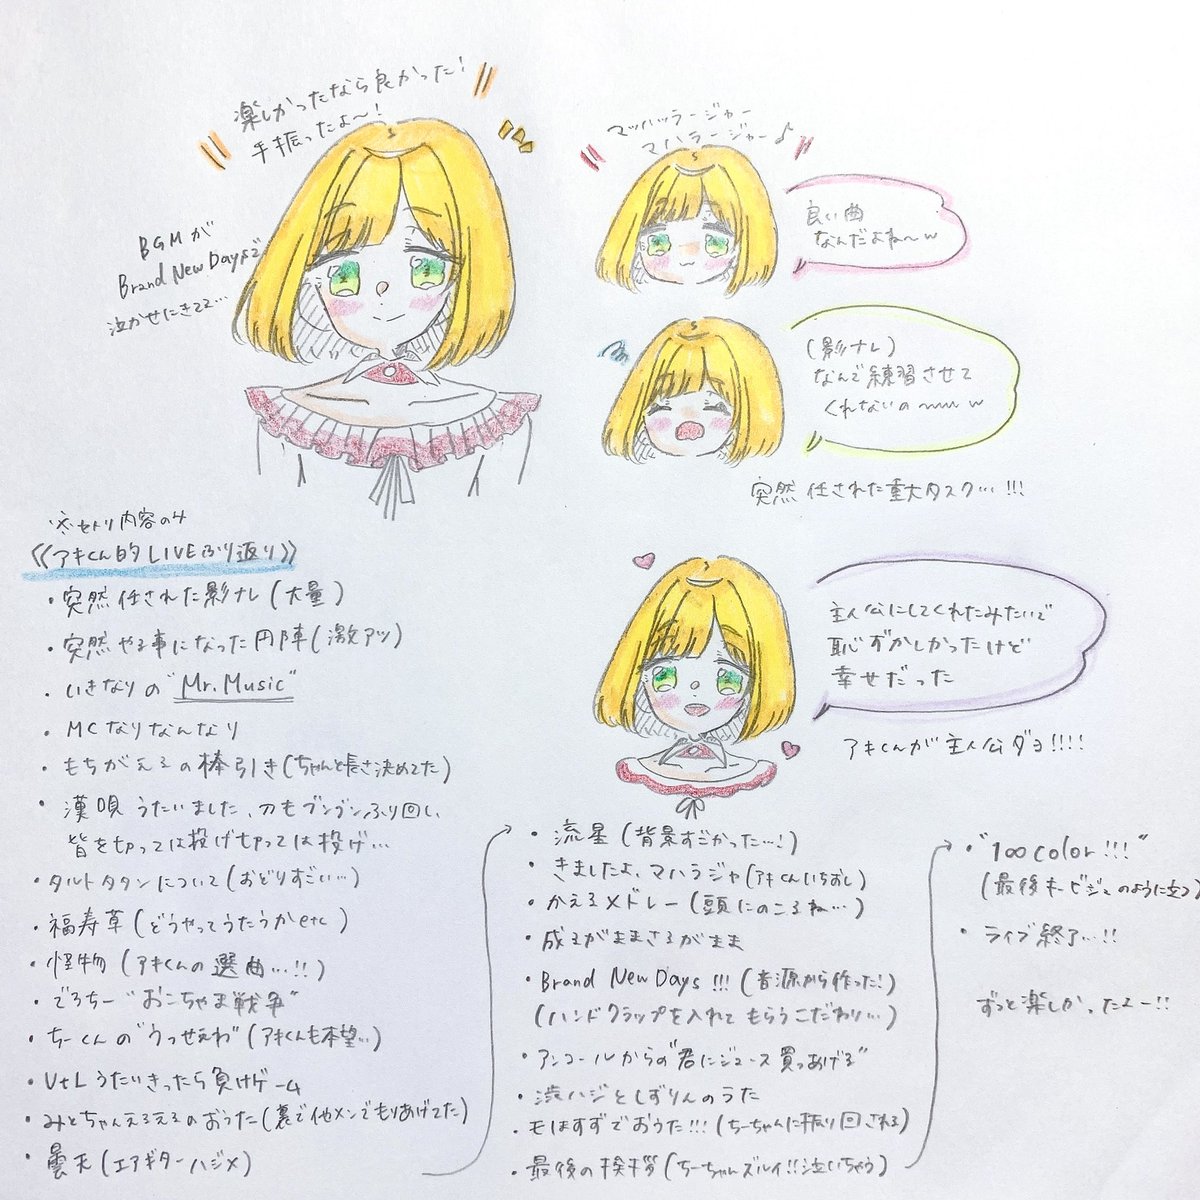 楽しかったなら良かった!
手振ったよ〜!
BGMが
Brand New Daysで
泣かせにきてて…
マッハッラージャー
マハラージャー♪
良い曲
なんだよね〜w
(影ナレ)
なんで練習させて
くれないの〜〜w
突然任された重大タスク…!!!
※セトリ内容のみ
《アキくん的LIVEふり返り》
主人公にしてくれたみたいで
恥ずかしかったけど
幸せだった
アキくんが主人公ダヨ!!!!
・突然任された影ナレ(大量)
・突然やる事になった円陣(激アツ)
・いきなりの"Mr.Music"
・MCなりなんなり
・もちがえるの棒引き(ちゃんと長さ決めてた)
・漢唄うたいました、刀もブンブンふり回し、
皆を切っては投げ切っては投げ…
・タルトタタンについて(おどりすごい…)
・福寿草(どうやってうたうかetc)
・怪物(アキくんの選曲…!!)
・でろちー"おこちゃま戦争"
・ちーくんの"うっせぇわ"(アキくんも本望…)
・VtLうたいきったら負けゲーム
・みとちゃんえるえるのおうた(裏で他メンでもりあげてた)
・曇天(エアギターハジメ)
・流星(背景すごかった…!)
・きましたよ、マハラジャ(アキくんいちおし)
・かえるメドレー(頭にのこるね…)
・成るがままさるがまま
・Brand New Days!!!(音源から作った!)
(ハンドクラップを入れてもらうこだわり…)
・アンコールからの"君にジュース買ってあげる"
・渋ハジとしずりんのうた
・モはすずでおうた!!!(ちーちゃんに振り回される)
・最後の挨拶(ちーちゃんズルイ!!泣いちゃう)
・"100color!!!"
(最後キービジュのように立つ)
・ライブ終了…!!
ずっと楽しかったよー!!